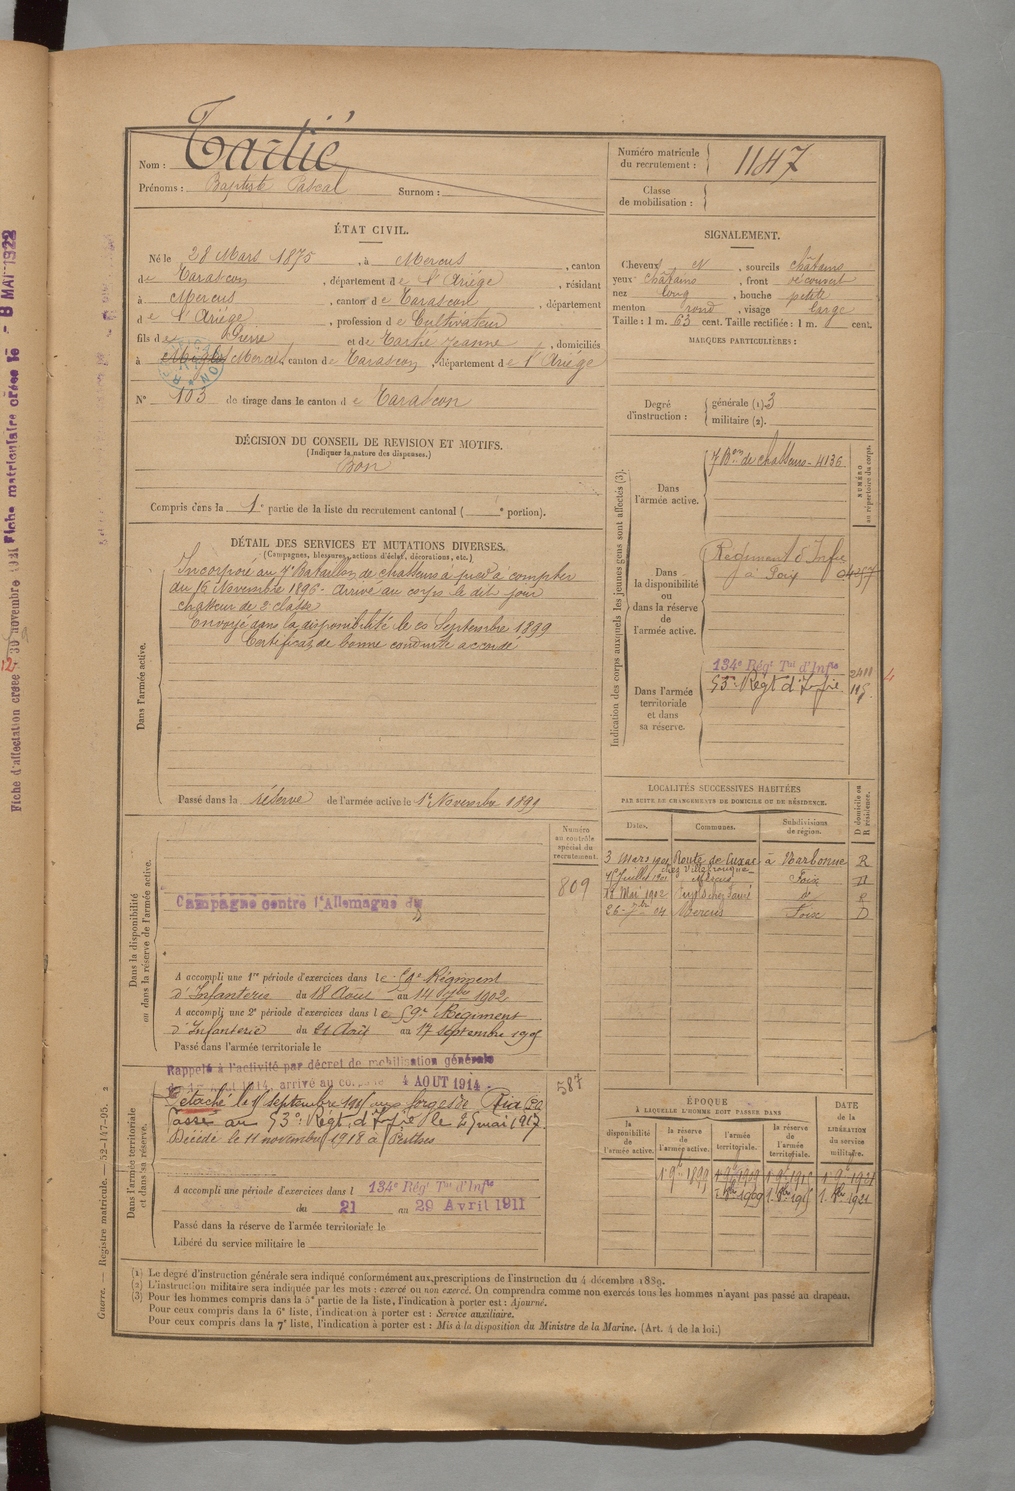 Nom : Tartié
Prénoms : Baptiste Pascal Surnom :
Numéro matricule du recrutement : 1147
Classe de mobilisation :
ÉTAT CIVIL.
Né le 28 Mars 1875, à Mercus, canton
de Tarascon, département de l'Ariège, résidant
à Mercus, canton de Tarascon, département
de l'Ariège, profession de Cultivateur
fils de Pierre et de Tartié Jeanne, domiciliés
à Mercus, canton de Tarascon, département de l'Ariège
N° 103 de tirage dans le canton de Tarascon
SIGNALEMENT.
Cheveux N, sourcils châtains
yeux châtains, front découvert
nez long, bouche petite
menton rond, visage large
Taille : 1 m. 63 cent. Taille rectifiée : 1 m. cent.
MARQUES PARTICULIÈRES :
Degré d'instruction : générale (1) 3
militaire (2).
DÉCISION DU CONSEIL DE REVISION ET MOTIFS.
(Indiquer la nature des dispenses.)
Bon
Compris dans la 1e partie de la liste du recrutement cantonal ( e portion).
DÉTAIL DES SERVICES ET MUTATIONS DIVERSES.
(Campagnes, blessures, actions d'éclat, décorations, etc.)
Dans l'armée active.
Incorporé au 7e Bataillon de chasseurs à pied à compter
du 16 Novembre 1896. Arrivé au corps le dit jour
chasseur de 2e classe
Envoyé dans la disponibilité le 20 Septembre 1899
Certificat de bonne conduite accordé
Passé dans la réserve de l'armée active le 1er Novembre 1899
Indication des corps auxquels les jeunes gens sont affectés (3).
NUMÉRO au répertoire du corps.
Dans l'armée active.
7 Bon de chasseurs - 4136
Dans la disponibilité ou dans la réserve de l'armée active.
Régiment d'Infie
à Foix 0457
Dans l'armée territoriale et dans sa réserve.
134e Régt Tal d'Infie 2411
53e Régt d'Infie
LOCALITÉS SUCCESSIVES HABITÉES
PAR SUITE DE CHANGEMENTS DE DOMICILE OU DE RÉSIDENCE.
Dates. Communes. Subdivisions de région. D domicile ou R résidence.
3 Mars 1901 Route de Cuxac à Narbonne R
chez Villerouque
Juillet 1901 Mercus Foix D
18 Mai 1902 R
26 7bre 04 Mercus Foix D
Dans la disponibilité ou dans la réserve de l'armée active.
Numéro au contrôle spécial du recrutement.
809
Campagne contre l'Allemagne du
A accompli une 1re période d'exercices dans le 59e Régiment
d'Infanterie du 18 Août au 14 7bre 1902
A accompli une 2e période d'exercices dans le 59e Régiment
d'Infanterie du 21 Août au 17 septembre 1905
Passé dans l'armée territoriale le
Dans l'armée territoriale et dans sa réserve.
587
Rappelé à l'activité par décret de mobilisation générale
1914, arrivé au corps le 4 AOUT 1914.
Détaché le septembre 1915 aux forges de Ria
Passé au 53e Régt d'Infie le 25 mai 1917
Décédé le 11 novembre 1918 à Perthes
A accompli une période d'exercices dans l 134e Rég' Tal d'Infie
du 21 au 29 Avril 1911
Passé dans la réserve de l'armée territoriale le
Libéré du service militaire le
ÉPOQUE
À LAQUELLE L'HOMME DOIT PASSER DANS
la disponibilité de l'armée active. la réserve de l'armée active. l'armée territoriale. la réserve de l'armée territoriale.
DATE de la LIBÉRATION du service militaire.
1er 9bre 1899 1er 9bre 1909 1er 9bre 1915 1er 9bre 1921
1er 8bre 1909 1er 8bre 1915 1er 8bre 1921
(1) Le degré d'instruction générale sera indiqué conformément aux prescriptions de l'instruction du 4 décembre 1889.
(2) L'instruction militaire sera indiquée par les mots : exercé ou non exercé. On comprendra comme non exercés tous les hommes n'ayant pas passé au drapeau.
(3) Pour les hommes compris dans la 5e partie de la liste, l'indication à porter est : Ajourné.
Pour ceux compris dans la 6e liste, l'indication à porter est : Service auxiliaire.
Pour ceux compris dans la 7e liste, l'indication à porter est : Mis à la disposition du Ministre de la Marine. (Art. 4 de la loi.)
Guerre. — Registre matricule. — 52-147-95. 2
Fiche matriculaire créée le - 8 MAI 1922
Fiche d'affectation créée 30 novembre 1921